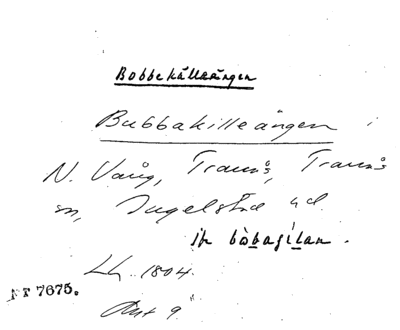 Bobbekälleängen
Bubbakilleängen i
N. Vång, Tranås, Tranås
sn, Ingelstad hd.
jfr bòbaɡílan.
Lh. 1804.
NT 7675.
Akt 9